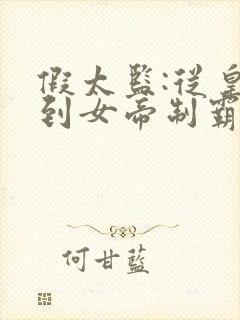 假太監:從皇
到女帝制霸
何甘藍